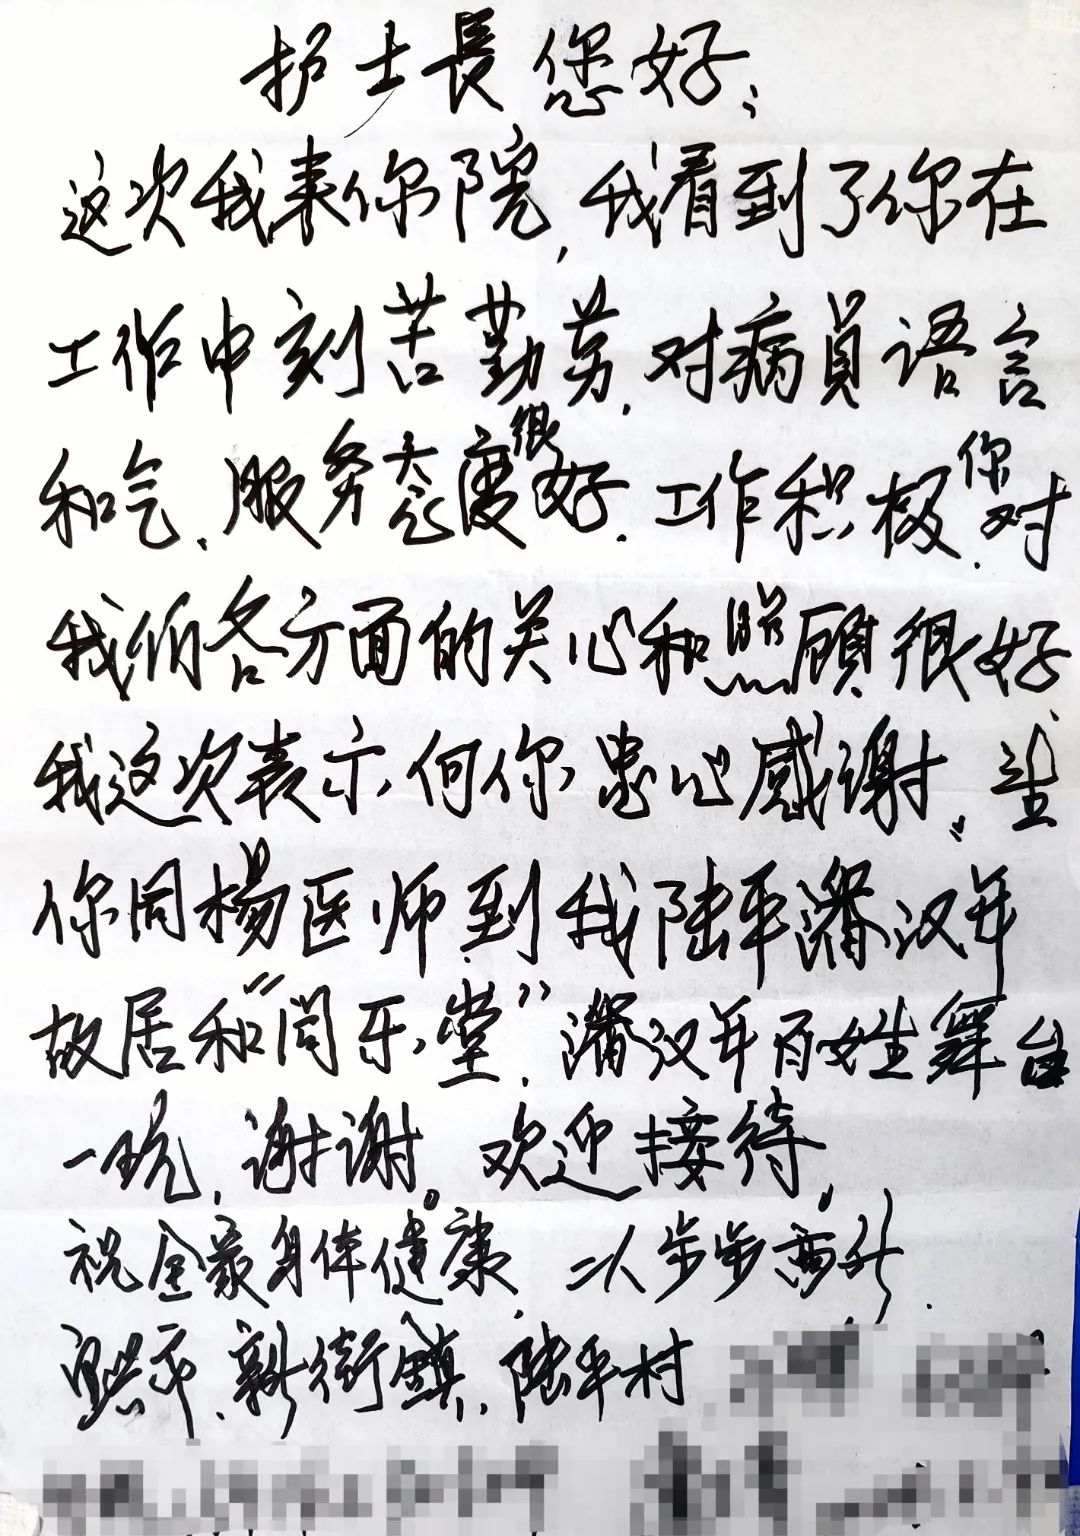 护士長您好；
这次我来你院，我看到了你在
工作中刻苦勤劳，对病員语言
和气、服务态度很好．工作积极．你对
我们各方面的关心和照顾很好
我这次表示向你忠心感谢。望
你同楊医师到我陆平潘汉年
故居和“同乐堂”，潘汉年百姓舞台
一玩，谢谢。欢迎接待，
祝全家身体健康，以步步高升．
宜兴市、新街镇，陆平村